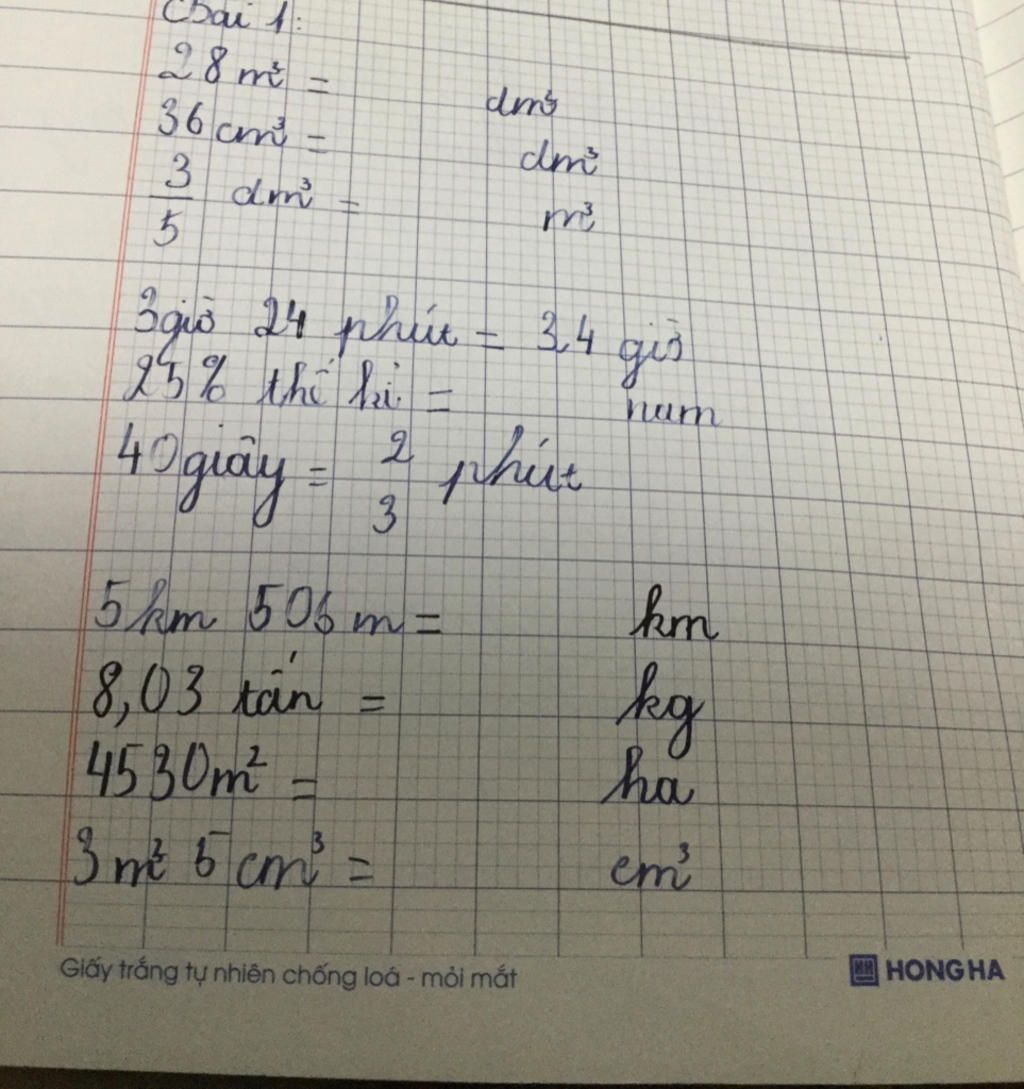 Bài 1:
28 m³ = dm³
36 cm³ = dm³
3/5 dm³ = m³
3giờ 24 phút = 3,4 giờ
25% thế kỉ = năm
40giây = 2/3 phút
5km 506 m = km
8,03 tấn = kg
4530m² = ha
3m³ 5 cm³ = cm³
Giấy trắng tự nhiên chống loá - mỏi mắt
HONG HA